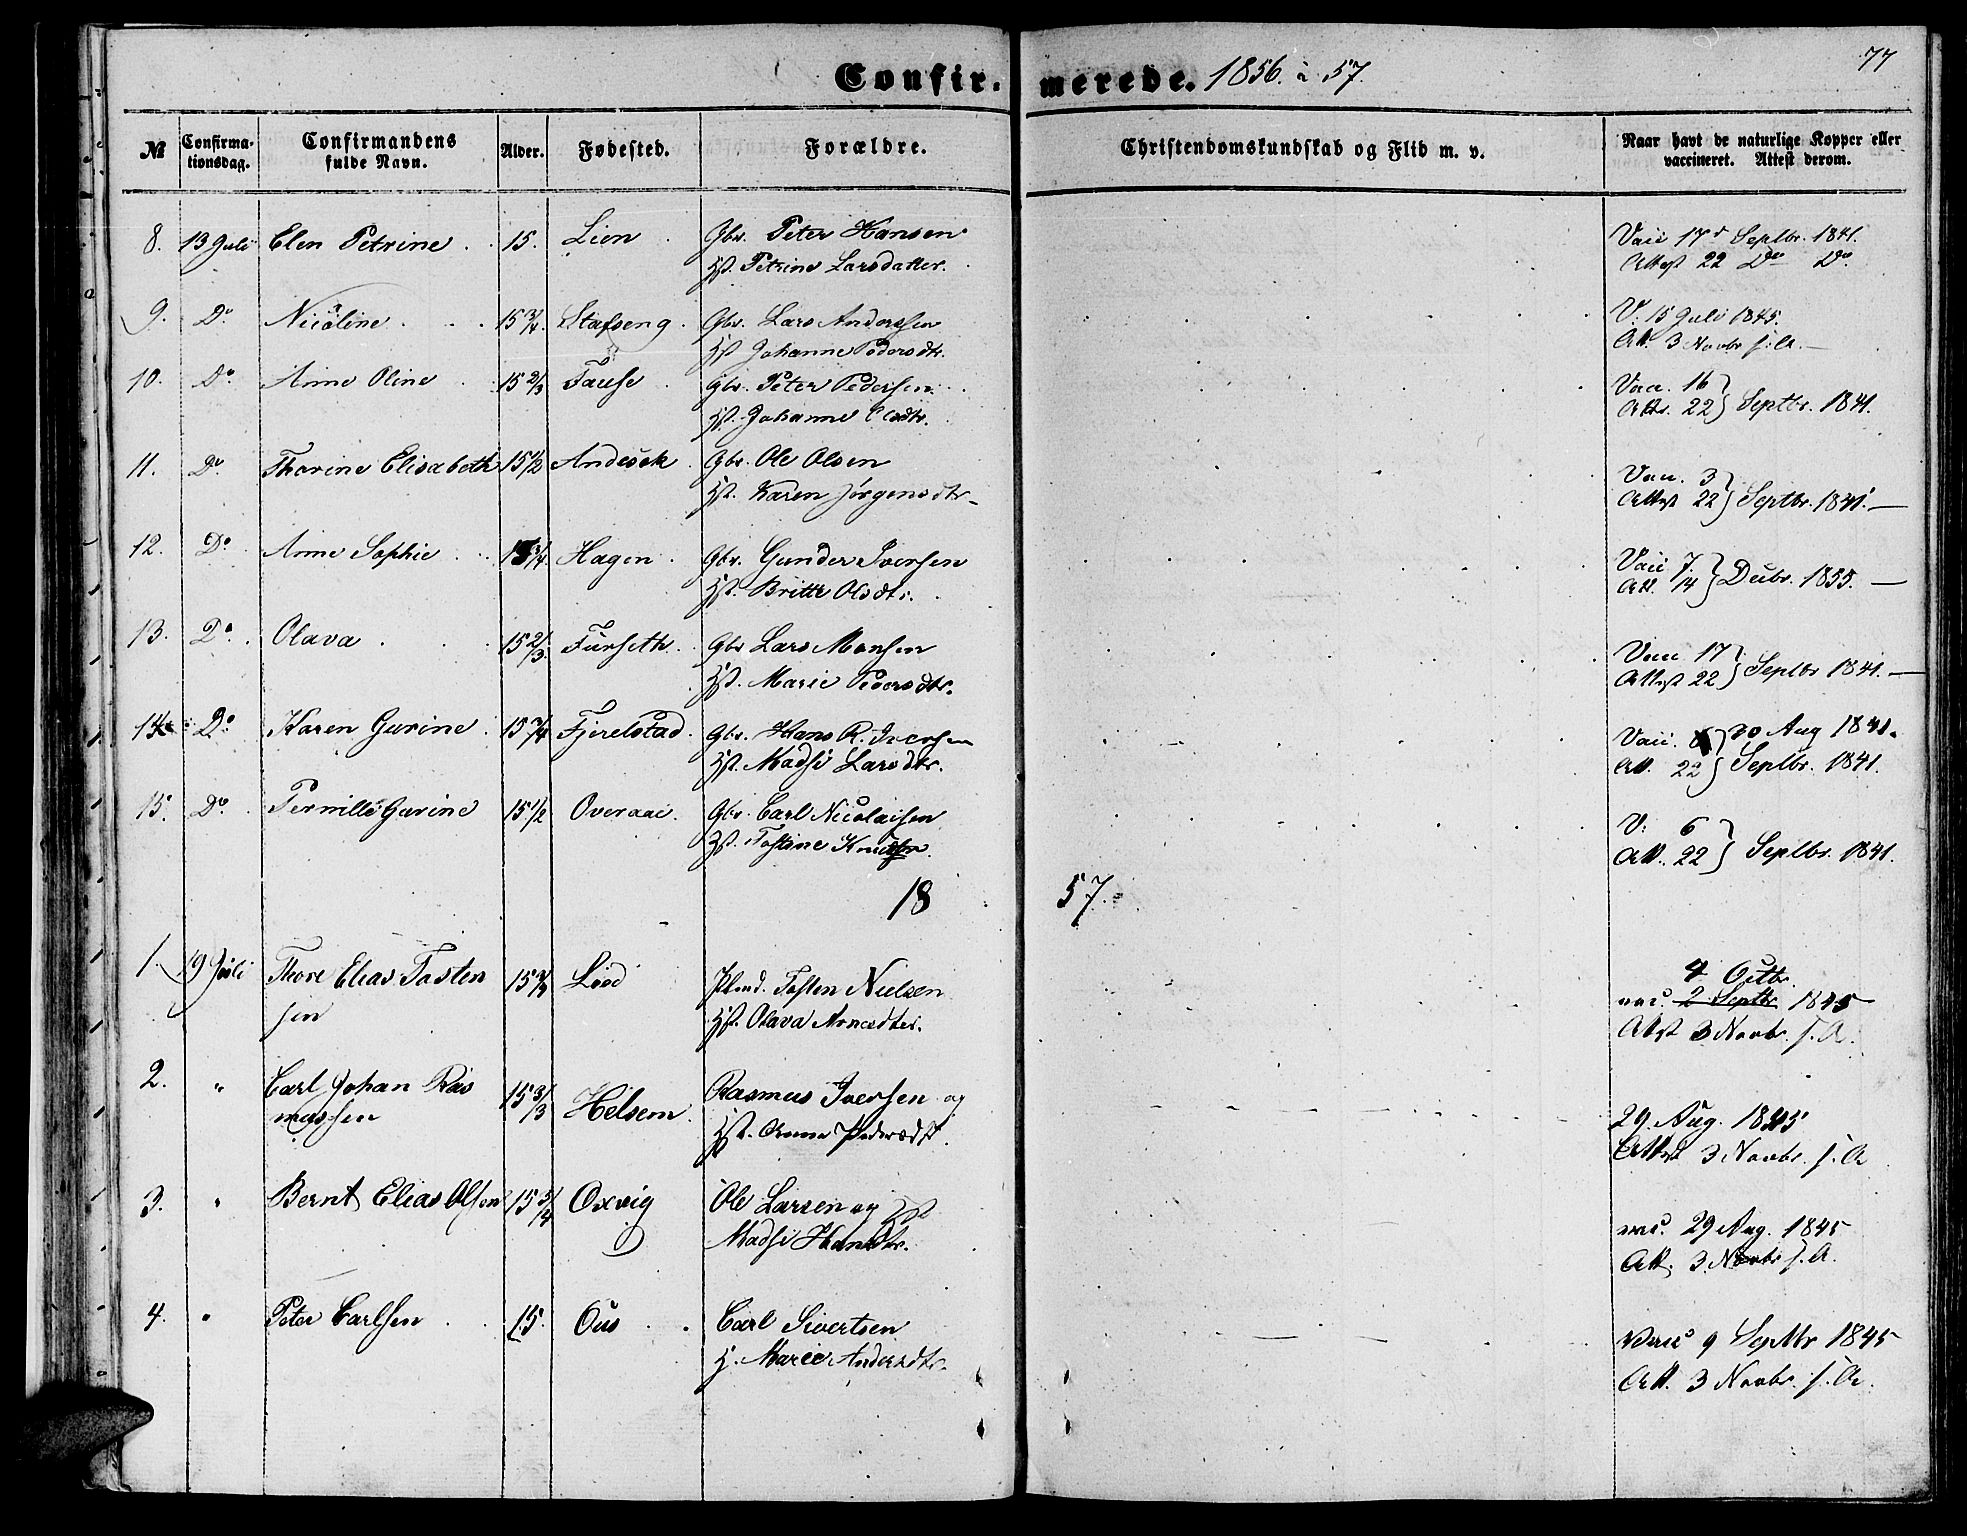 77
Confirmerede. 1856. à 57.
№ Confirmationsdag. Confirmandens fulde Navn. Alder. Fødested. Forældre. Christendomskundskab og Flid m. v. Naar havt de naturlige Kopper eller vaccineret. Attest derom.
8. 13 Juli Elen Petrine 15. Lien Gbr. Peter Hansen Vacc 17 Septbr. 1841.
Hst. Petrine Larsdatter. Attest 22 Do Do
9. Do Nicoline 15 3/4. Stafseng Gbr. Lars Anderssen V. 15 Juli 1845.
Hst Johanne Pedersdtr. Att. 3 Novbr s: A.
10. Do Anne Oline 15 2/3 Taule Gbr. Peter Pedersen Vacc. 16
Hst. Johanne Olsdtr. Att. 22 Septbr. 1841.
11. Do Thorine Elisabeth 15 1/2 Andesek Gbr. Ole Olsen Vacc. 3
Hst. Karen Jørgensdtr Attest 22 Septbr. 1841.
12. Do Anne Sophie 15 3/4 Hagen Gbr. Gunder Iversen Vacc 7.
Hst. Britte Olsdtr. Att. 14 Decbr. 1855.
13. Do Olava 15 2/3. Furseth Gbr Lars Monsen Vacc 17
Hst. Marie Pedersdtr. Attest 22 Septbr 1841.
14 Do Karen Gurine 15 3/4 Fjerelstad Gbr. Hans R. Iversen Vacc. 30 Aug 1841.
Hst. Madsi Larsdtr. Att. 22 Septbr. 1841.
15. Do Pernille Gurine 15 1/2 Overaae. Gbr. Carl Nicolaisen V: 6
Hst. Tostine Knuds Att. 22 Septbr. 1841.
18 57.
1. 19 Juli Thore Elias Tosten 15 3/4 Lood Tosten Nielsen 4 Octbr.
sen Hst. Olava Arnesdter. vac. 2 Septbr 1845
Attst 3 Novbr. s. A.
2. " Carl Johan Ras 15 3/3 Helsem Rasmus Iversen og 29. Aug. 1845
mussen Hst. Anna Pedersdt. Attest 3 Novbr. s. A
3. " Bernt Elias Olsen 15 3/4 Oxvig Ole Larsen og Hst vac. 29 Aug. 1845
Madsi Hansdtr. Att. 3 Novbr s. A.
4. " Peter Carlsen 15. Ous Carl Sivertsen Vacc 9 Septbr 1845
H. Marie Andersdtr. Att. 3 Novbr. s. A.